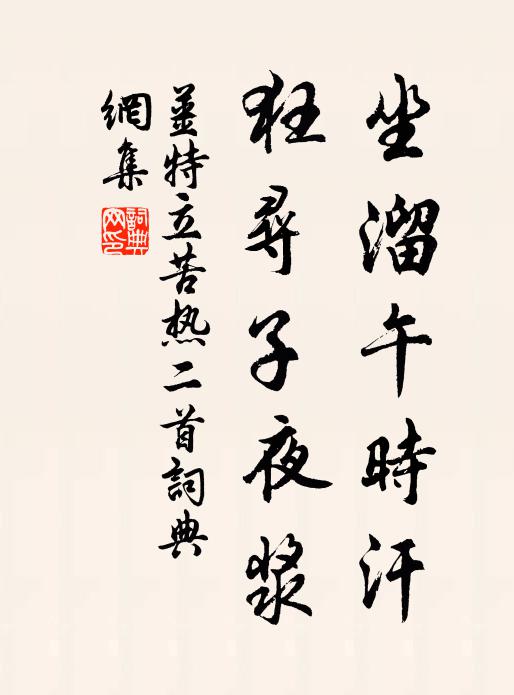 坐溜午時汗
狂尋子夜漿
薑特立苦热二首詞典
網集
詞典網印